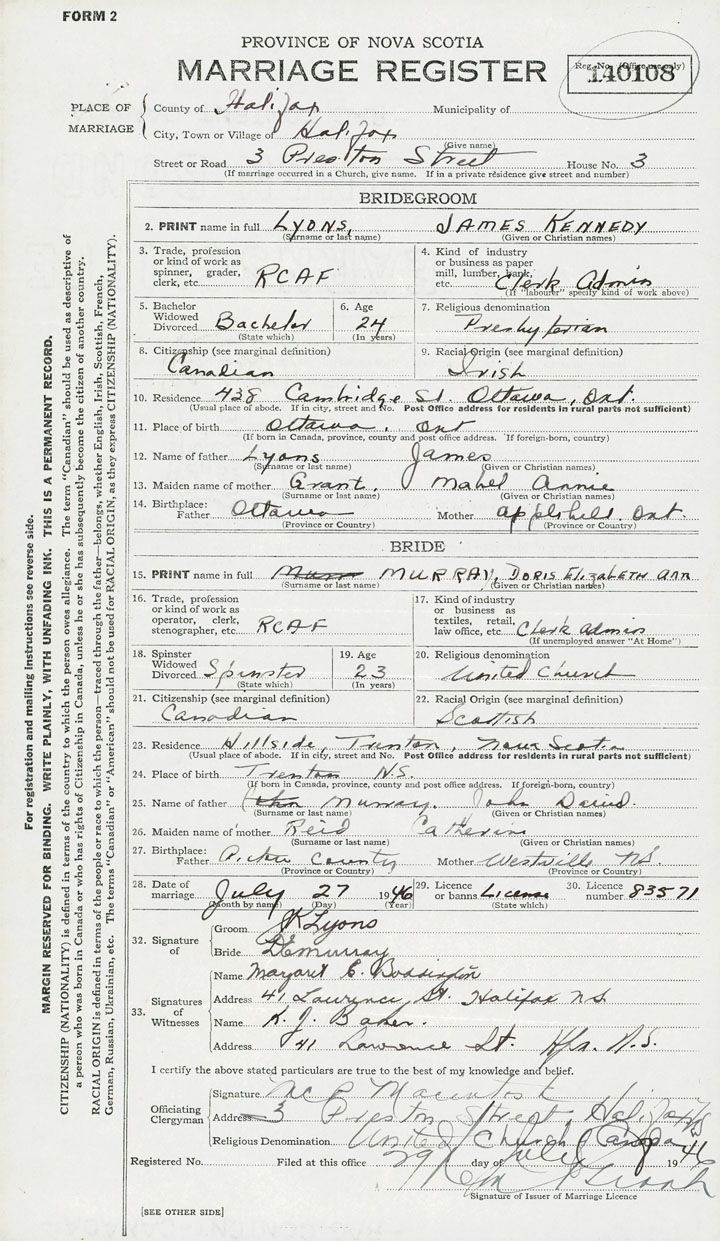 FORM 2
PROVINCE OF NOVA SCOTIA
MARRIAGE REGISTER
Reg. No. (Office use only)
140108
PLACE OF MARRIAGE
County of Halifax Municipality of
City, Town or Village of Halifax
(Give name)
Street or Road 3 Preston Street House No. 3
(If marriage occurred in a Church, give name. If in a private residence give street and number)
BRIDEGROOM
2. PRINT name in full LYONS, JAMES KENNEDY
(Surname or last name) (Given or Christian names)
3. Trade, profession or kind of work as spinner, grader, clerk, etc. RCAF
4. Kind of industry or business as paper mill, lumber, bank, etc. Clerk Admin
(If "labourer" specify kind of work above)
5. Bachelor Widowed Divorced Bachelor
(State which)
6. Age 24
(In years)
7. Religious denomination Presbyterian
8. Citizenship (see marginal definition) Canadian
9. Racial Origin (see marginal definition) Irish
10. Residence 438 Cambridge St. Ottawa, Ont.
(Usual place of abode. If in city, street and No. Post Office address for residents in rural parts not sufficient)
11. Place of birth Ottawa, Ont
(If born in Canada, province, county and post office address. If foreign-born, country)
12. Name of father Lyons James
(Surname or last name) (Given or Christian names)
13. Maiden name of mother Grant, Mabel Annie
(Surname or last name) (Given or Christian names)
14. Birthplace: Father Ottawa Mother Applehill. Ont.
(Province or Country) (Province or Country)
BRIDE
15. PRINT name in full MURRAY, DORIS ELIZABETH ANN
(Surname or last name) (Given or Christian names)
16. Trade, profession or kind of work as operator, clerk, stenographer, etc. RCAF
17. Kind of industry or business as textiles, retail, law office, etc. Clerk Admin
(If unemployed answer "At Home")
18. Spinster Widowed Divorced Spinster
(State which)
19. Age 23
(In years)
20. Religious denomination United Church
21. Citizenship (see marginal definition) Canadian
22. Racial Origin (see marginal definition) Scottish
23. Residence Hillside, Trenton, Nova Scotia
(Usual place of abode. If in city, street and No. Post Office address for residents in rural parts not sufficient)
24. Place of birth Trenton N.S.
(If born in Canada, province, county and post office address. If foreign-born, country)
25. Name of father Murray, John David.
(Surname or last name) (Given or Christian names)
26. Maiden name of mother Reid Catherine
(Surname or last name) (Given or Christian names)
27. Birthplace: Father Pictou County Mother Westville NS.
(Province or Country) (Province or Country)
28. Date of marriage July 27 1946
(Month by name) (Day) (Year)
29. Licence or banns License
(State which)
30. Licence number 83571
32. Signature of
Groom JKLyons
Bride DEMurray
33. Signatures of Witnesses
Name Margaret E. Boddington
Address 41 Lawrence St. Halifax NS
Name K. J. Baker.
Address 41 Lawrence St. Hfx. N.S.
I certify the above stated particulars are true to the best of my knowledge and belief.
Officiating Clergyman
Signature Macintosh
Address 3 Preston Street, Halifax NS
Religious Denomination United Church of Canada
Registered No. Filed at this office 29 day of July 1946
Signature of Issuer of Marriage Licence
[SEE OTHER SIDE]
For registration and mailing instructions see reverse side.
MARGIN RESERVED FOR BINDING. WRITE PLAINLY, WITH UNFADING INK. THIS IS A PERMANENT RECORD.
CITIZENSHIP (NATIONALITY) is defined in terms of the country to which the person owes allegiance. The term "Canadian" should be used as descriptive of
a person who was born in Canada or who has rights of Citizenship in Canada, unless he or she has subsequently become the citizen of another country.
RACIAL ORIGIN is defined in terms of the people or race to which the person—traced through the father—belongs, whether English, Irish, Scottish, French,
German, Russian, Ukrainian, etc. The terms "Canadian" or "American" should not be used for RACIAL ORIGIN, as they express CITIZENSHIP (NATIONALITY).